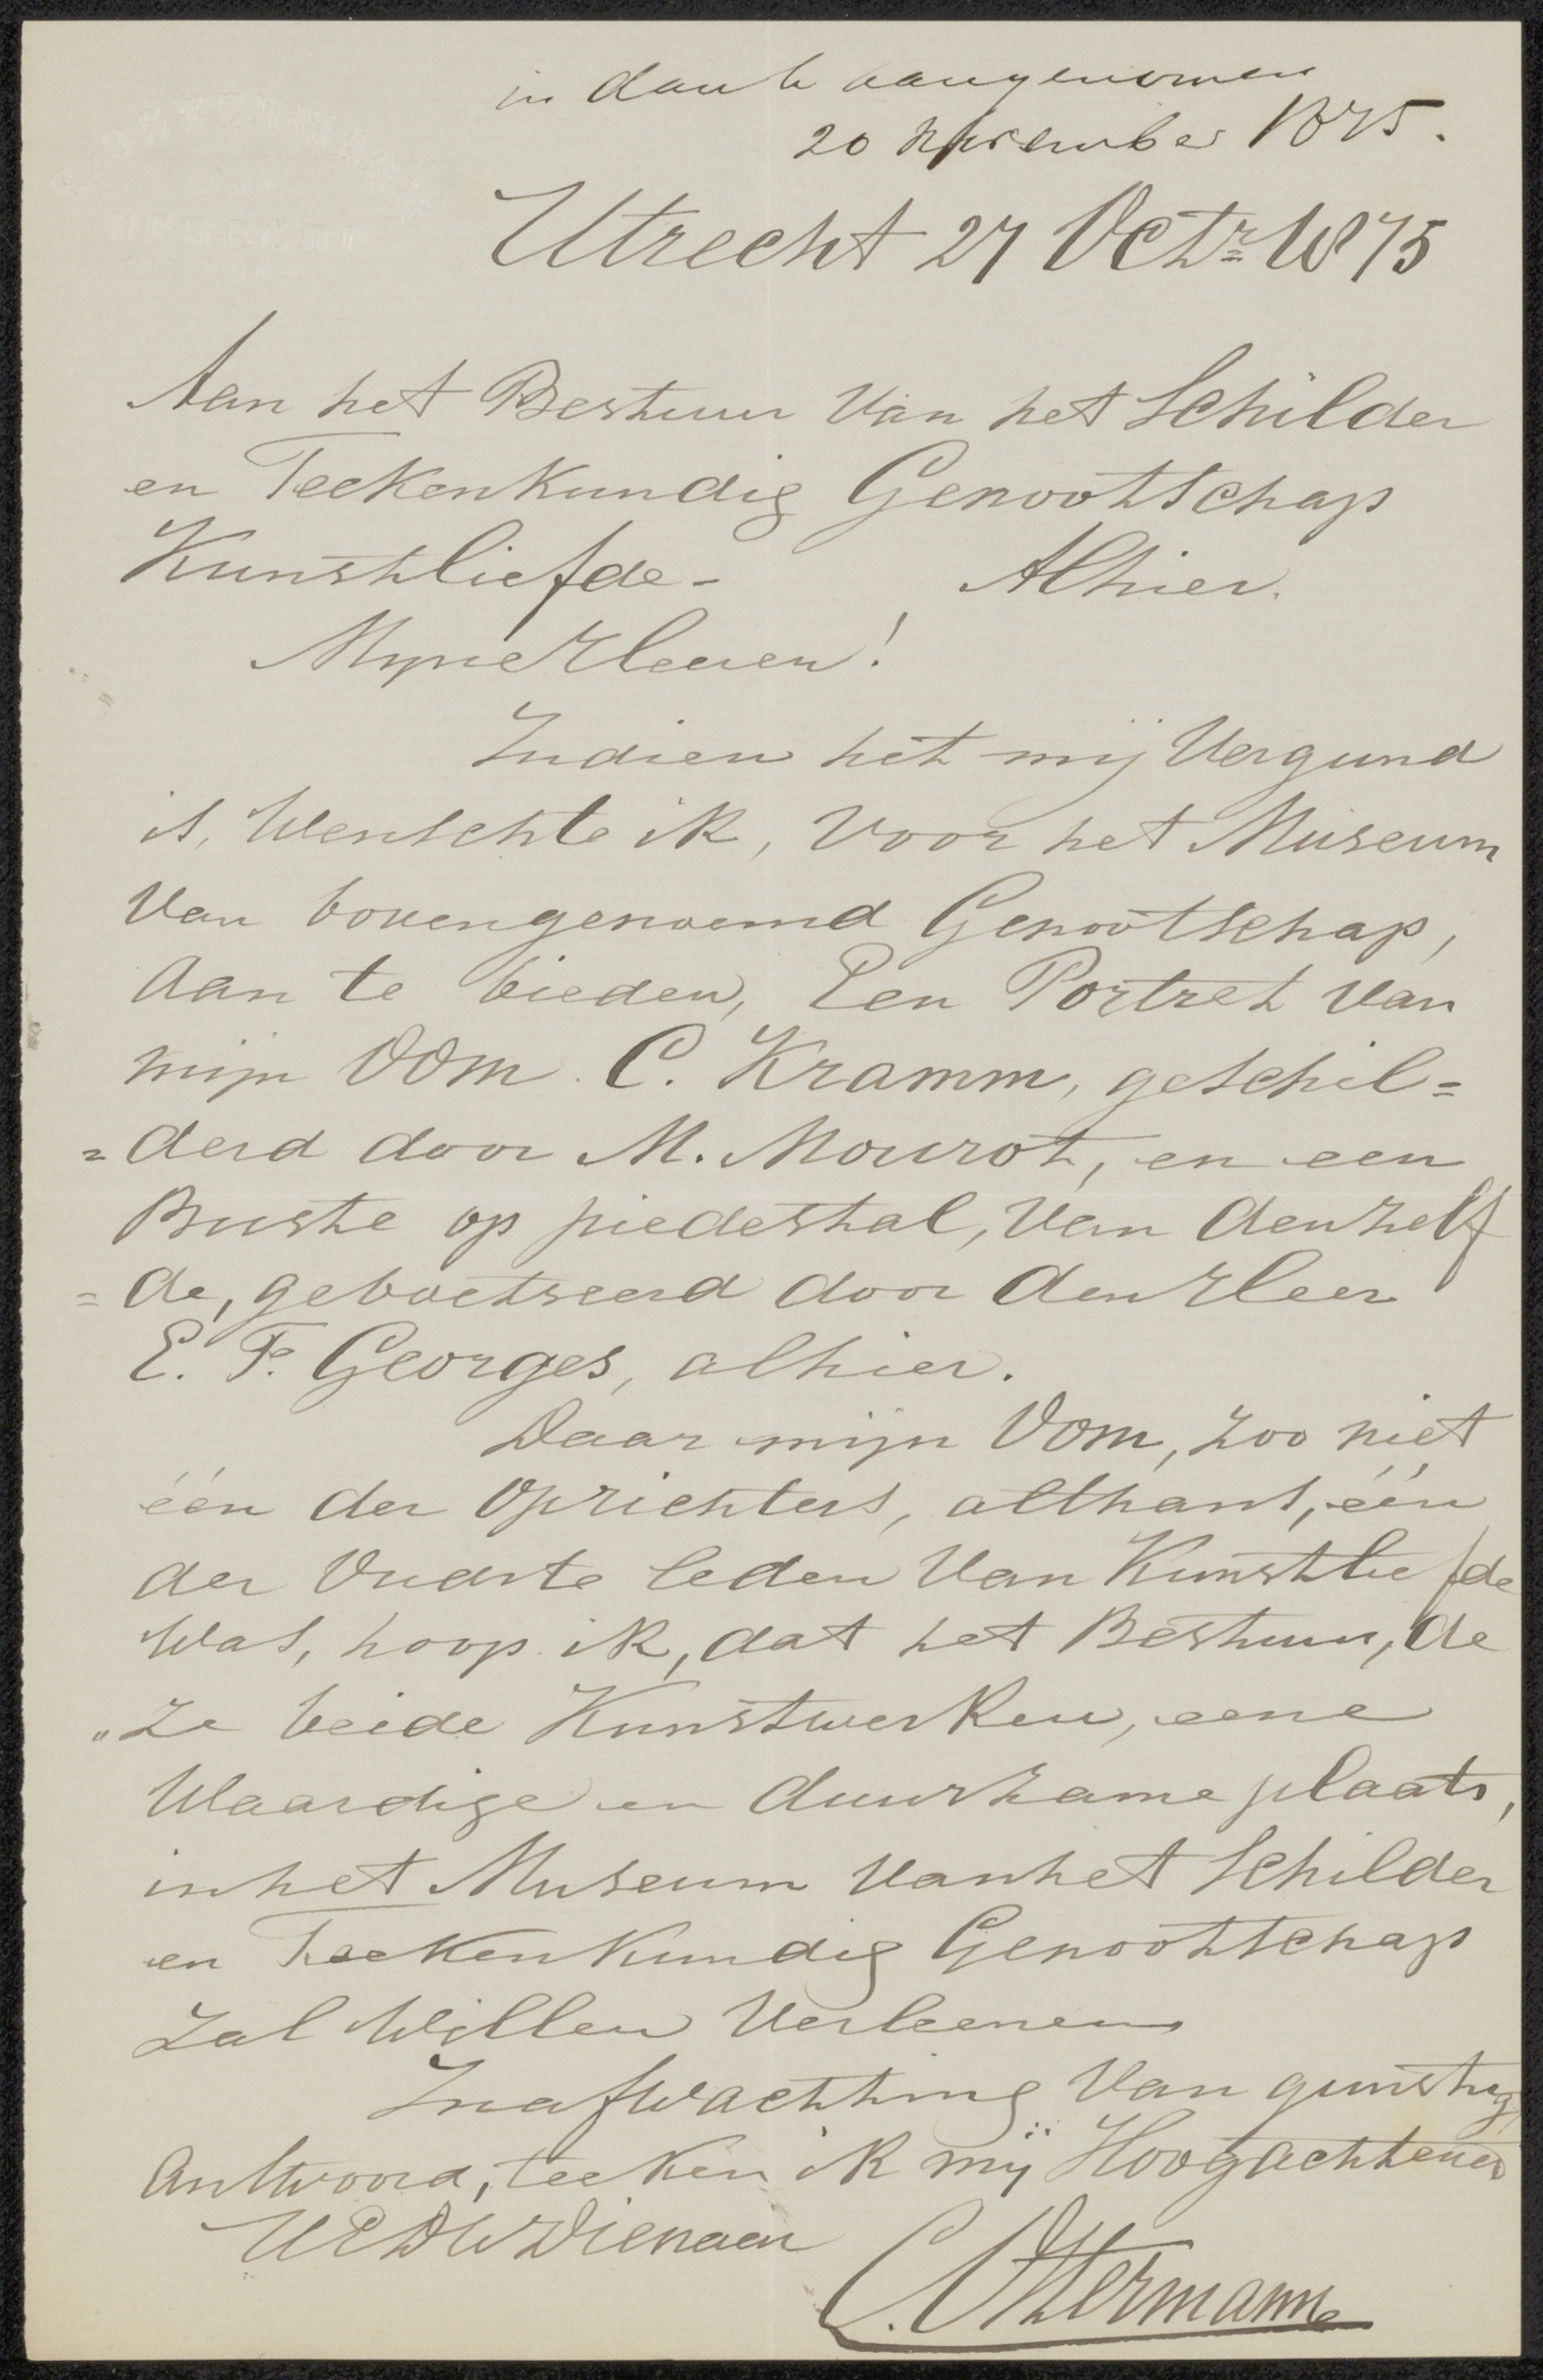 in dank aangenomen
20 November 1875.
Utrecht 27 Octr 1875
Aan het Bestuur Van het Schilder
en Teekenkundig Genootschap
Kunstliefde - Alhier.
Myne Heeren!
Indien het mij Vergund
is, Wenschte ik, Voor het Museum
Van bovengenoemd Genootschap,
Aan te bieden, Een Portret Van
mijn Oom C. Kramm, geschil=
=derd door M. Mourot, en een
Buste op piedestal, Van denzelf
=de, geboetseerd door den Heer
E. F. Georges, alhier.
Daar mijn Oom, zoo niet
één der Oprichters, althans, één
der Oudste leden Van Kunstliefde
Was, hoop ik, dat het Bestuur, de
„ze beide Kunstwerken, eene
Waardige en duurzame plaats,
in het Museum Van het Schilder
en Teekenkundig Genootschap
Zal Willen Verleenen
In afwachting Van gunstig
Antwoord, teeken ik mij Hoogachtend
UEDWDienaar
C. Ottermann